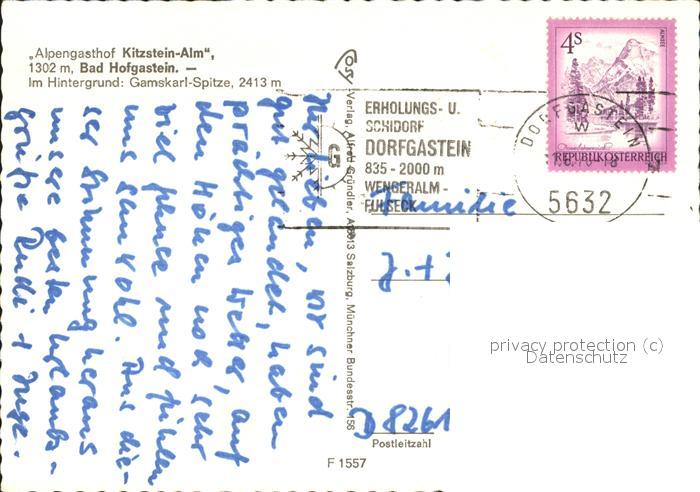 „Alpengasthof Kitzstein-Alm",
1302 m, Bad Hofgastein. —
Im Hintergrund: Gamskarl-Spitze, 2413 m
Ihr Lieben, wir sind
gut gelandet, haben
prächtiges Wetter, auf
den Höhen noch sehr
viel Schnee und fühlen
uns sauwohl. Aus die-
ser Stimmung heraus
unsere besten Urlaubs-
grüße Rudi + Inge.
Verlag Alfred Gründler, A 5013 Salzburg, Münchner Bundesstr. 156
ERHOLUNGS- U.
SCHIDORF
DORFGASTEIN
835 - 2000 m
WENGERALM -
FULSECK
4 S
ALMSEE
REPUBLIK ÖSTERREICH
DORFGASTEIN
5632
Familie
J. +
D 8261
Postleitzahl
F 1557
privacy protection (c)
Datenschutz